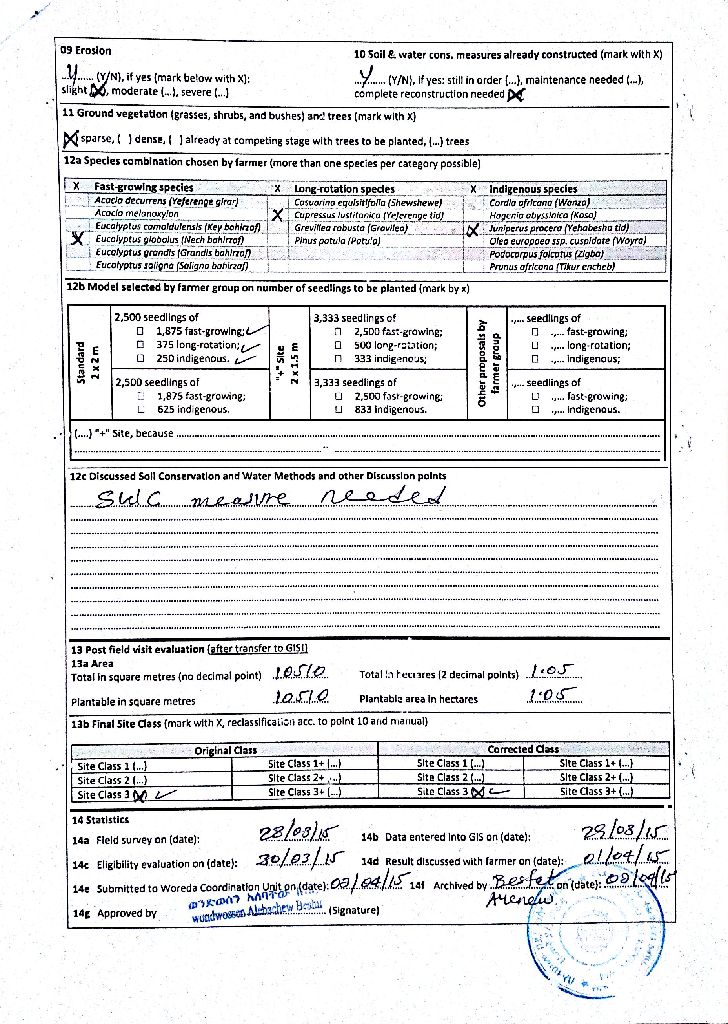 09 Erosion
Y (Y/N), if yes (mark below with X):
slight (X), moderate (...), severe (...)
10 Soil & water cons. measures already constructed (mark with X)
Y (Y/N), if yes: still in order (...), maintenance needed (...),
complete reconstruction needed (X)
11 Ground vegetation (grasses, shrubs, and bushes) and trees (mark with X)
(X) sparse, ( ) dense, ( ) already at competing stage with trees to be planted, (...) trees
12a Species combination chosen by farmer (more than one species per category possible)
X Fast-growing species X Long-rotation species X Indigenous species
Acacia decurrens (Yeferenge girar) Casuarina equisitifolia (Shewshewe) Cordia africana (Wanza)
Acacia melanoxylon X Cupressus lustitanica (Yeferenge tid) Hagenia abyssinica (Koso)
Eucalyptus camaldulensis (Key bahirzaf) Grevillea robusta (Gravilea) X Juniperus procera (Yehabesha tid)
X Eucalyptus globolus (Nech bahirzaf) Pinus patula (Patula) Olea europaea ssp. cuspidate (Wayra)
Eucalyptus grandis (Grandis bahirzaf) Podocarpus falcatus (Zigba)
Eucalyptus saligna (Saligna bahirzaf) Prunus africana (Tikur encheb)
12b Model selected by farmer group on number of seedlings to be planted (mark by x)
Standard
2 x 2 m
2,500 seedlings of
☐ 1,875 fast-growing; ✓
☐ 375 long-rotation; ✓
☐ 250 indigenous. ✓
2,500 seedlings of
☐ 1,875 fast-growing;
☐ 625 indigenous.
"+" Site
2 x 1.5 m
3,333 seedlings of
☐ 2,500 fast-growing;
☐ 500 long-rotation;
☐ 333 indigenous;
3,333 seedlings of
☐ 2,500 fast-growing;
☐ 833 indigenous.
Other proposals by
farmer group
.,... seedlings of
☐ .,... fast-growing;
☐ .,... long-rotation;
☐ .,... indigenous;
.,... seedlings of
☐ .,... fast-growing;
☐ .,... indigenous.
(....) "+" Site, because
12c Discussed Soil Conservation and Water Methods and other Discussion points
SWC measure needed
13 Post field visit evaluation (after transfer to GIS!)
13a Area
Total in square metres (no decimal point) 10510 Total in hectares (2 decimal points) 1.05
Plantable in square metres 10510 Plantable area in hectares 1.05
13b Final Site Class (mark with X, reclassification acc. to point 10 and manual)
Original Class Corrected Class
Site Class 1 (...) Site Class 1+ (...) Site Class 1 (...) Site Class 1+ (...)
Site Class 2 (...) Site Class 2+ (...) Site Class 2 (...) Site Class 2+ (...)
Site Class 3 (X) ✓ Site Class 3+ (...) Site Class 3 (X) ✓ Site Class 3+ (...)
14 Statistics
14a Field survey on (date): 28/03/15 14b Data entered into GIS on (date): 29/03/15
14c Eligibility evaluation on (date): 30/03/15 14d Result discussed with farmer on (date): 01/04/15
14e Submitted to Woreda Coordination Unit on (date): 09/04/15 14f Archived by on (date): 09/04/15
14g Approved by (Signature)